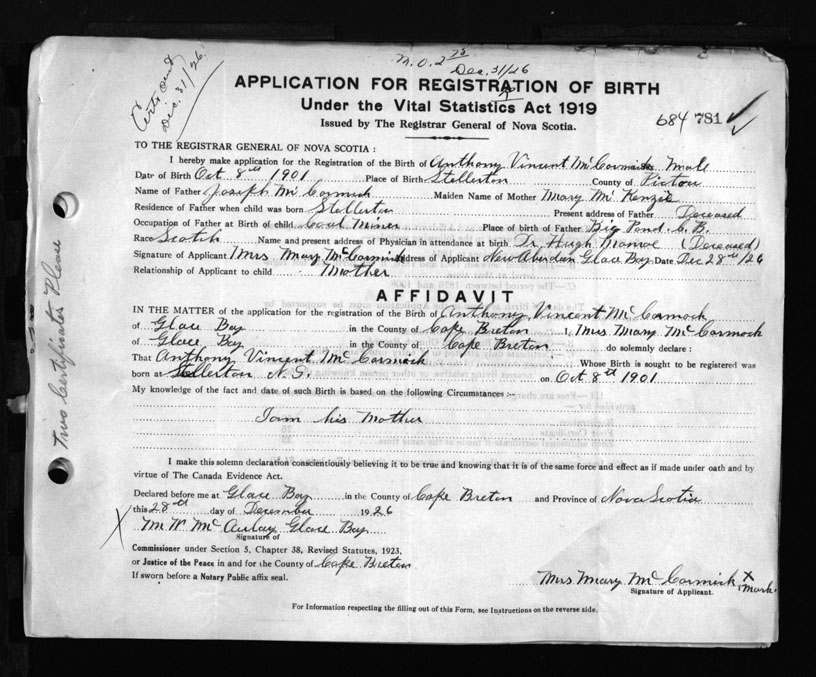 M.O. 2 75
Dec. 31/26
Certs sent
Dec. 31/26.
APPLICATION FOR REGISTRATION OF BIRTH
Under the Vital Statistics Act 1919
Issued by The Registrar General of Nova Scotia.
684 781
TO THE REGISTRAR GENERAL OF NOVA SCOTIA :
I hereby make application for the Registration of the Birth of Anthony Vincent McCormick Male
Date of Birth Oct 8th 1901 Place of Birth Stellerton County of Pictou
Name of Father Joseph McCormick Maiden Name of Mother Mary McKenzie
Residence of Father when child was born Stellerton Present address of Father Deceased
Occupation of Father at Birth of child Coal Miner Place of birth of Father Big Pond. C.B.
Race Scotch Name and present address of Physician in attendance at birth Dr Hugh Monroe (Deceased)
Signature of Applicant Mrs Mary McCormick Address of Applicant New Aberdeen Glace Bay Date Dec 28th/26
Relationship of Applicant to child Mother
AFFIDAVIT
IN THE MATTER of the application for the registration of the Birth of Anthony Vincent McCormick
of Glace Bay in the County of Cape Breton I, Mrs Mary McCormack
of Glace Bay in the County of Cape Breton do solemnly declare :
That Anthony Vincent McCormick Whose Birth is sought to be registered was
born at Stellerton N.S. on Oct 8th 1901
My knowledge of the fact and date of such Birth is based on the following Circumstances :-
I am his Mother
I make this solemn declaration conscientiously believing it to be true and knowing that it is of the same force and effect as if made under oath and by
virtue of The Canada Evidence Act.
Declared before me at Glace Bay in the County of Cape Breton and Province of Nova Scotia
this 28th day of December 1926
X M W McAulay Glace Bay
Signature of
Commissioner under Section 5, Chapter 38, Revised Statutes, 1923.
or Justice of the Peace in and for the County of Cape Breton
If sworn before a Notary Public affix seal.
Mrs Mary McCormick X Mark.
Signature of Applicant.
For Information respecting the filling out of this Form, see Instructions on the reverse side.
Two Certificates Please